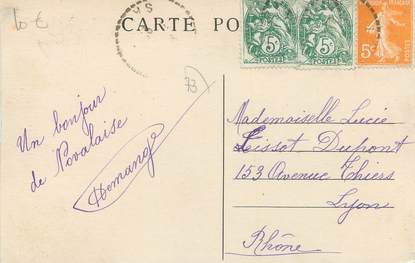 10 €
CARTE PO
5c
POSTES
5c
POSTES
5c
POSTES
73
Un bonjour
de Novalaise
Demange
Mademoiselle Lucie
Tissot Dupont
153 Avenue Thiers
Lyon
Rhône